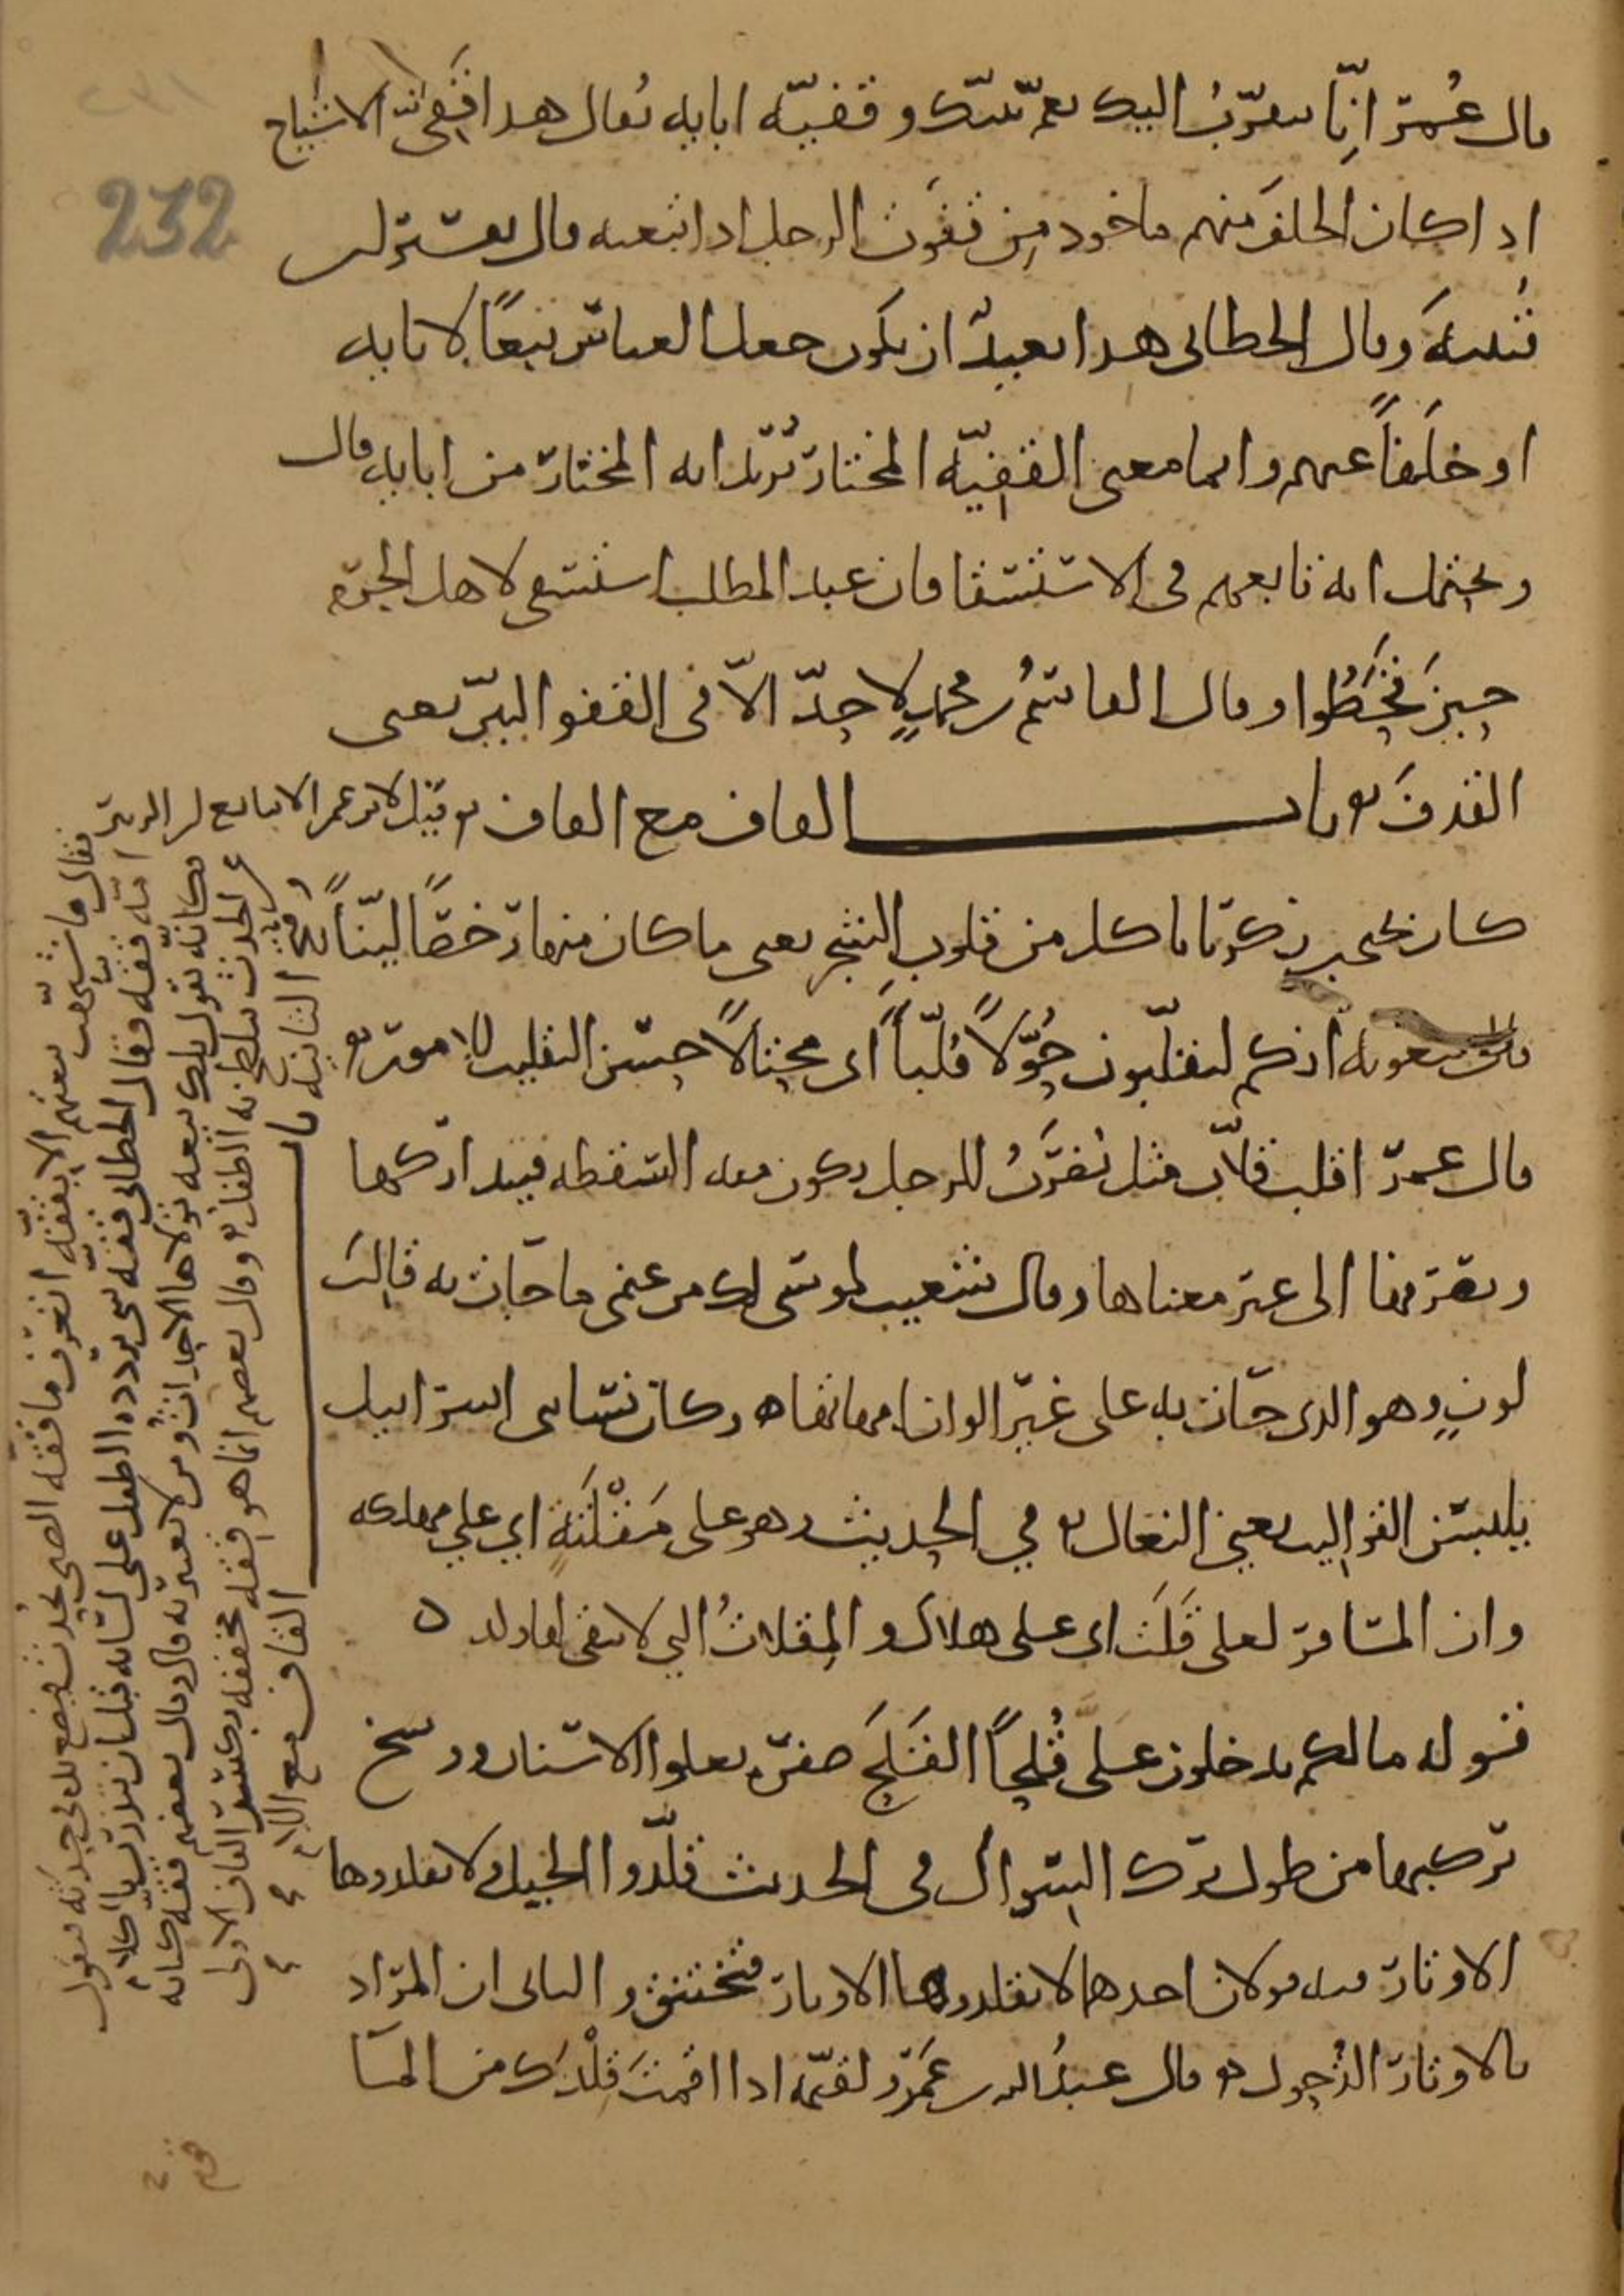 قال عمر انا نتقرب اليك بعم نبيك وقفية ابايه يقال هذا قفي الاشياخ
اذا كان الخلف منهم ماخوذ من قفوت الرجل اذا تبعته قال بعستر لب
وقال الخطابي هذا بعيد ان يكون جعل العباس تبعا لابايه
او خلفا عنهم وانما معنى القفية المختار يريد انه المختار من ابايه قال
ويحتمل انه تابعهم في الاستسقا فان عبد المطلب استسقى لاهل الحرم
حين قحطوا وقال القاسم بن محمد لا حد الا في القفو البين يعني
القذف باب القاف مع القاف قيل لابن عمر الا تبايع لابن الزبير
كان يحيى بن زكريا ياكل من قلوب الشجر يعني ما كان منها رخصا لينا
قال معوية انكم لتقلبون حولا قلبا اي محتالا حسن التقليب للامور
قال عمر اقلب قلاب مثل يضرب للرجل يكون منه السقطه فيتداركها
وبصرفها الى غير معناها وقال شعيب لموسى لك من غنمي ما جات به قالب
لون وهو الذي جات به على غير الوان امهاتها وكان نسا بني اسرائيل
يلبسن القواليب يعني النعال في الحديث وهو على مقلتة اي على مهلكه
وان المسافر لعلى قلت اي على هلاك والمقلات التي لا يبقى لها ولد
قوله مالكم تدخلون على قلحا القلح صفره تعلوا الاسنان ووسخ
تركبها من طول ترك السواك في الحديث قلدوا الخيل ولا تقلدوها
الاوتار فيه قولان احدهما لا تقلدوها الاوتار فتختنق والثاني ان المراد
بالاوتار الذحول قال عبد الله بن عمرو لقيمه اذا اقمت قلدك من الما
فقال ما شبهت بيعتهم الا بققه اتعرف ما ققه الصبي يحدث فيضع يده في حدثه فيقول
امه ققه وقال الخطابي ققه شي يردده الطفل على لسانه قبل ان يتدرب بالكلام
فكانه يقول تلك بيعه تولاها الاحداث ومن لا يعتبر به قال وقال بعضهم ققه كانه
الحدث يلطخ به الطفل وقال بعضهم انما هو ققه مخففه بكسر القاف الاولى
وفتح الثانيه باب القاف مع اللام
232